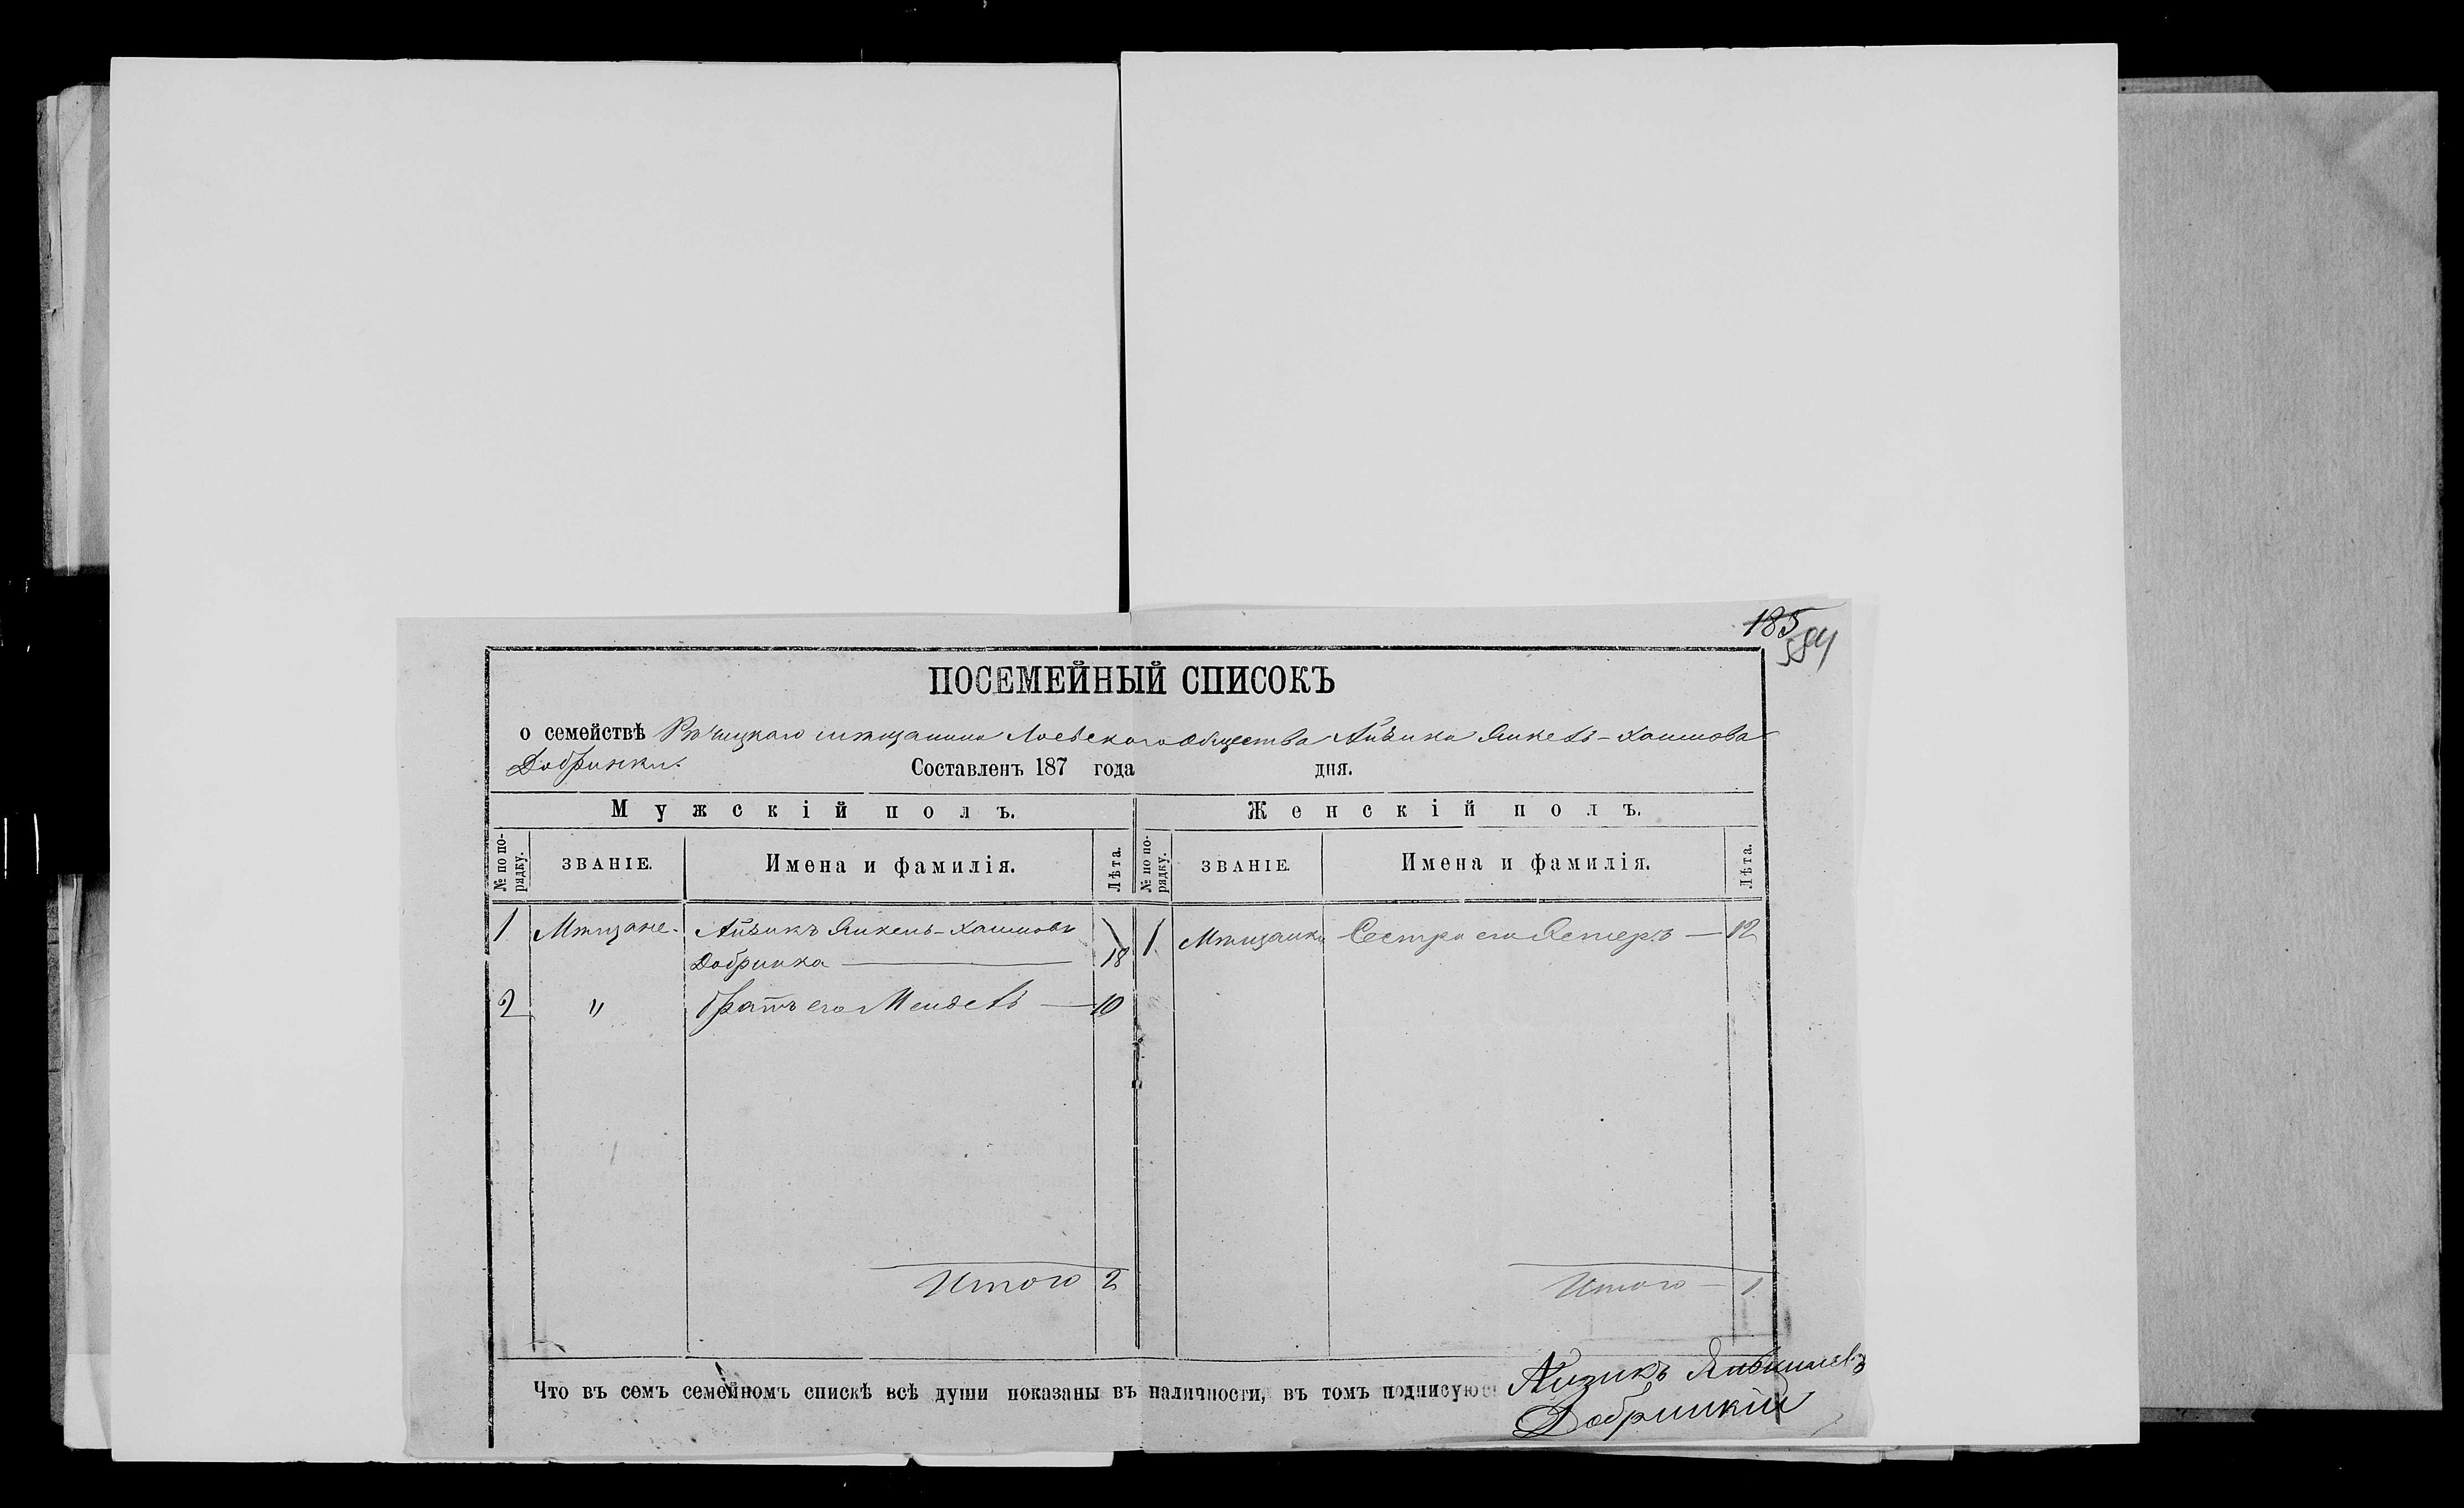 185
584
ПОСЕМЕЙНЫЙ СПИСОКЪ
о семействѣ Рѣчицкаго мѣщанина Лоевскаго Общества Айзика Янкель-Хаимова
Добринки.
Составленъ 187 года дня.
Мужскій полъ. Женскій полъ.
№ по порядку. ЗВАНІЕ. Имена и фамилія. Лѣта. № по порядку. ЗВАНІЕ. Имена и фамилія. Лѣта.
1 Мѣщане. Айзикъ Янкель-Хаимовъ 1 Мѣщанки Сестра его Эстеръ — 12
Добринка — 18
2 " Братъ его Мендель — 10
Итого 2 Итого — 1
Что въ семъ семейномъ спискѣ всѣ души показаны въ наличности, въ томъ подписуюсь Айзикъ
Добринкій